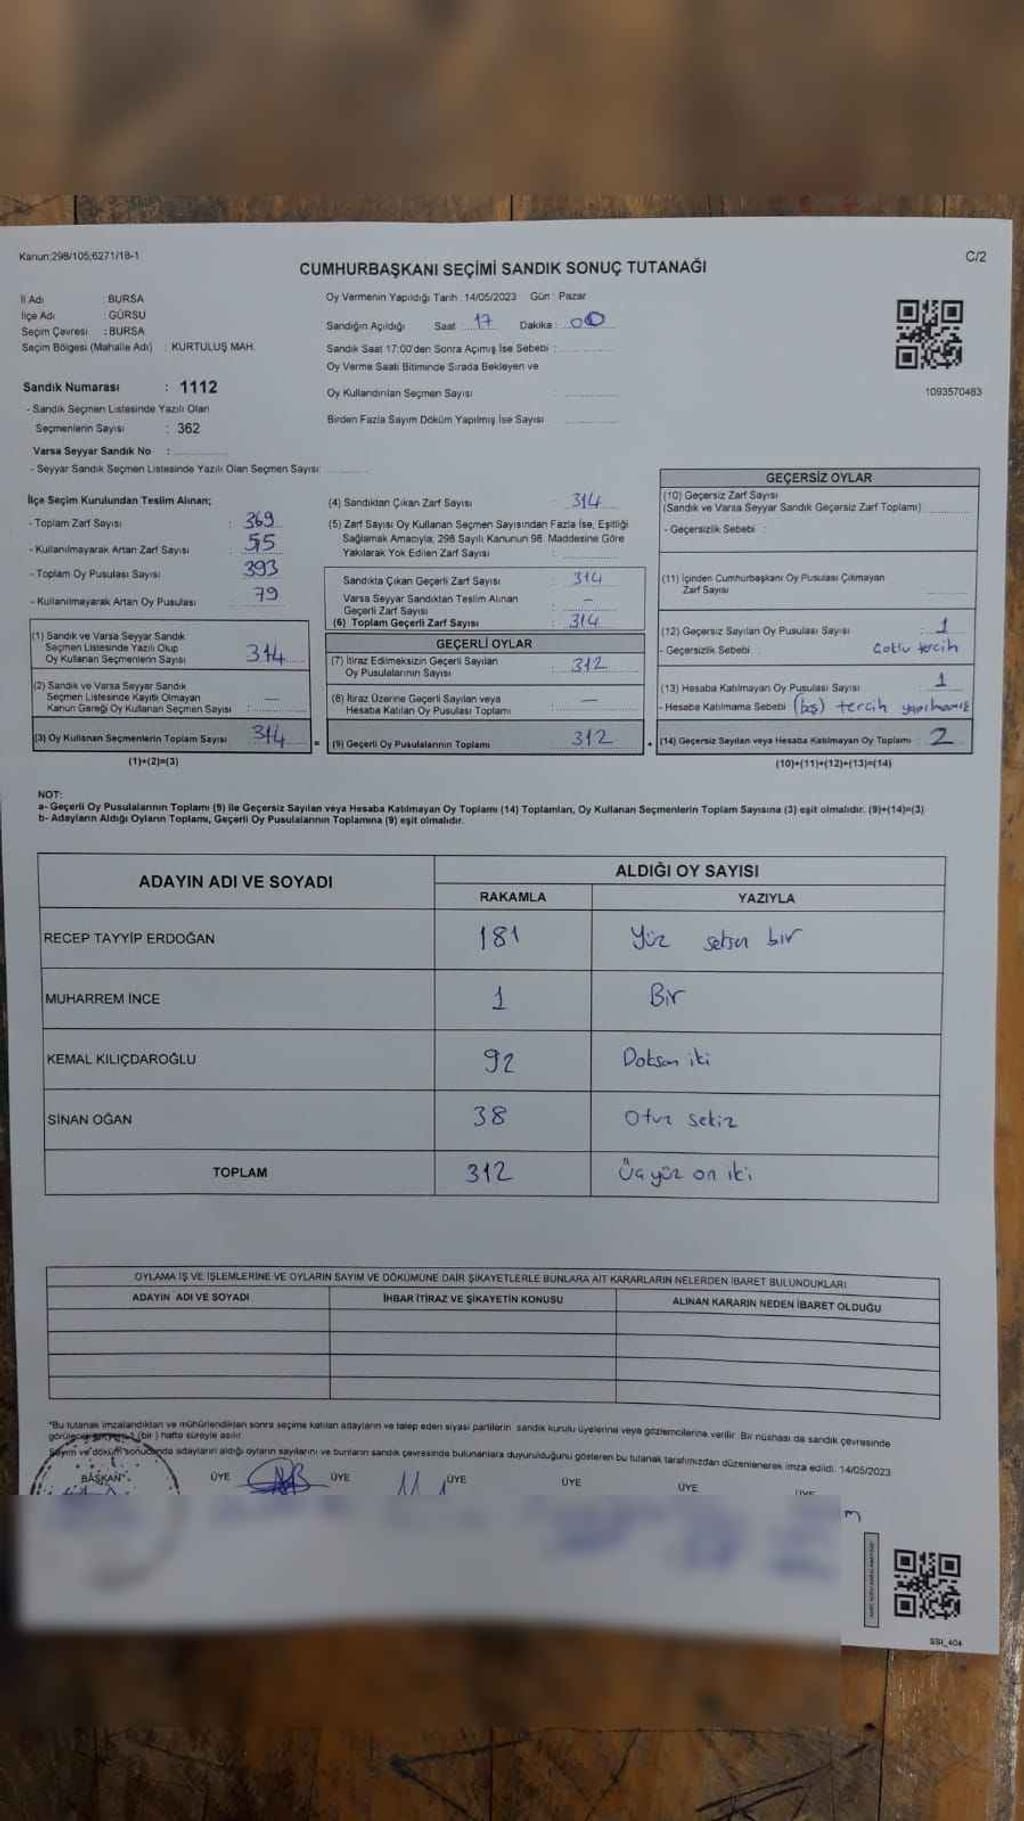 Kanun:298/105;6271/18-1
C/2
CUMHURBAŞKANI SEÇİMİ SANDIK SONUÇ TUTANAĞI
İl Adı : BURSA
İlçe Adı : GÜRSU
Seçim Çevresi : BURSA
Seçim Bölgesi (Mahalle Adı) : KURTULUŞ MAH.
Oy Vermenin Yapıldığı Tarih : 14/05/2023 Gün : Pazar
Sandığın Açıldığı Saat : 17 Dakika : 00
Sandık Saat 17:00'den Sonra Açımış İse Sebebi :
Oy Verme Saati Bitiminde Sırada Bekleyen ve
Oy Kullandırılan Seçmen Sayısı :
Birden Fazla Sayım Döküm Yapılmış İse Sayısı
1093570483
Sandık Numarası : 1112
- Sandık Seçmen Listesinde Yazılı Olan
Seçmenlerin Sayısı : 362
Varsa Seyyar Sandık No :
- Seyyar Sandık Seçmen Listesinde Yazılı Olan Seçmen Sayısı:
İlçe Seçim Kurulundan Teslim Alınan;
- Toplam Zarf Sayısı : 369
- Kullanılmayarak Artan Zarf Sayısı : 55
- Toplam Oy Pusulası Sayısı : 393
- Kullanılmayarak Artan Oy Pusulası : 79
(1) Sandık ve Varsa Seyyar Sandık
Seçmen Listesinde Yazılı Olup
Oy Kullanan Seçmenlerin Sayısı : 314
(2) Sandık ve Varsa Seyyar Sandık
Seçmen Listesinde Kayıtlı Olmayan
Kanun Gereği Oy Kullanan Seçmen Sayısı : —
(3) Oy Kullanan Seçmenlerin Toplam Sayısı : 314
(1)+(2)=(3)
(4) Sandıktan Çıkan Zarf Sayısı : 314
(5) Zarf Sayısı Oy Kullanan Seçmen Sayısından Fazla İse, Eşitliği
Sağlamak Amacıyla, 298 Sayılı Kanunun 98. Maddesine Göre
Yakılarak Yok Edilen Zarf Sayısı :
Sandıkta Çıkan Geçerli Zarf Sayısı : 314
Varsa Seyyar Sandıktan Teslim Alınan
Geçerli Zarf Sayısı : —
(6) Toplam Geçerli Zarf Sayısı : 314
GEÇERLİ OYLAR
(7) İtiraz Edilmeksizin Geçerli Sayılan
Oy Pusulalarının Sayısı : 312
(8) İtiraz Üzerine Geçerli Sayılan veya
Hesaba Katılan Oy Pusulası Toplamı : —
= (9) Geçerli Oy Pusulalarının Toplamı 312
GEÇERSİZ OYLAR
(10) Geçersiz Zarf Sayısı
(Sandık ve Varsa Seyyar Sandık Geçersiz Zarf Toplamı)
- Geçersizlik Sebebi :
(11) İçinden Cumhurbaşkanı Oy Pusulası Çıkmayan
Zarf Sayısı
(12) Geçersiz Sayılan Oy Pusulası Sayısı : 1
- Geçersizlik Sebebi : Çoklu tercih
(13) Hesaba Katılmayan Oy Pusulası Sayısı : 1
- Hesaba Katılmama Sebebi (boş) tercih yapılmamış
+ (14) Geçersiz Sayılan veya Hesaba Katılmayan Oy Toplamı : 2
(10)+(11)+(12)+(13)=(14)
NOT:
a- Geçerli Oy Pusulalarının Toplamı (9) ile Geçersiz Sayılan veya Hesaba Katılmayan Oy Toplamı (14) Toplamları, Oy Kullanan Seçmenlerin Toplam Sayısına (3) eşit olmalıdır. (9)+(14)=(3)
b- Adayların Aldığı Oyların Toplamı, Geçerli Oy Pusulalarının Toplamına (9) eşit olmalıdır.
ADAYIN ADI VE SOYADI
ALDIĞI OY SAYISI
RAKAMLA YAZIYLA
RECEP TAYYİP ERDOĞAN 181 Yüz seksen bir
MUHARREM İNCE 1 Bir
KEMAL KILIÇDAROĞLU 92 Doksan iki
SİNAN OĞAN 38 Otuz sekiz
TOPLAM 312 Üçyüz on iki
OYLAMA İŞ VE İŞLEMLERİNE VE OYLARIN SAYIM VE DÖKÜMÜNE DAİR ŞİKAYETLERLE BUNLARA AİT KARARLARIN NELERDEN İBARET BULUNDUKLARI
ADAYIN ADI VE SOYADI İHBAR İTİRAZ VE ŞİKAYETİN KONUSU ALINAN KARARIN NEDEN İBARET OLDUĞU
*Bu tutanak imzalandıktan ve mühürlendikten sonra seçime katılan adayların ve talep eden siyasi partilerin sandık kurulu üyelerine veya gözlemcilerine verilir. Bir nüshası da sandık çevresinde
(bir) hafta süreyle asılır.
Sayım ve döküm sonucunda adayların aldığı oyların sayılarını ve bunların sandık çevresinde bulunanlara duyurulduğunu gösteren bu tutanak tarafımızdan düzenlenerek imza edildi. 14/05/2023
BAŞKAN ÜYE ÜYE ÜYE ÜYE ÜYE ÜYE
SSI_404